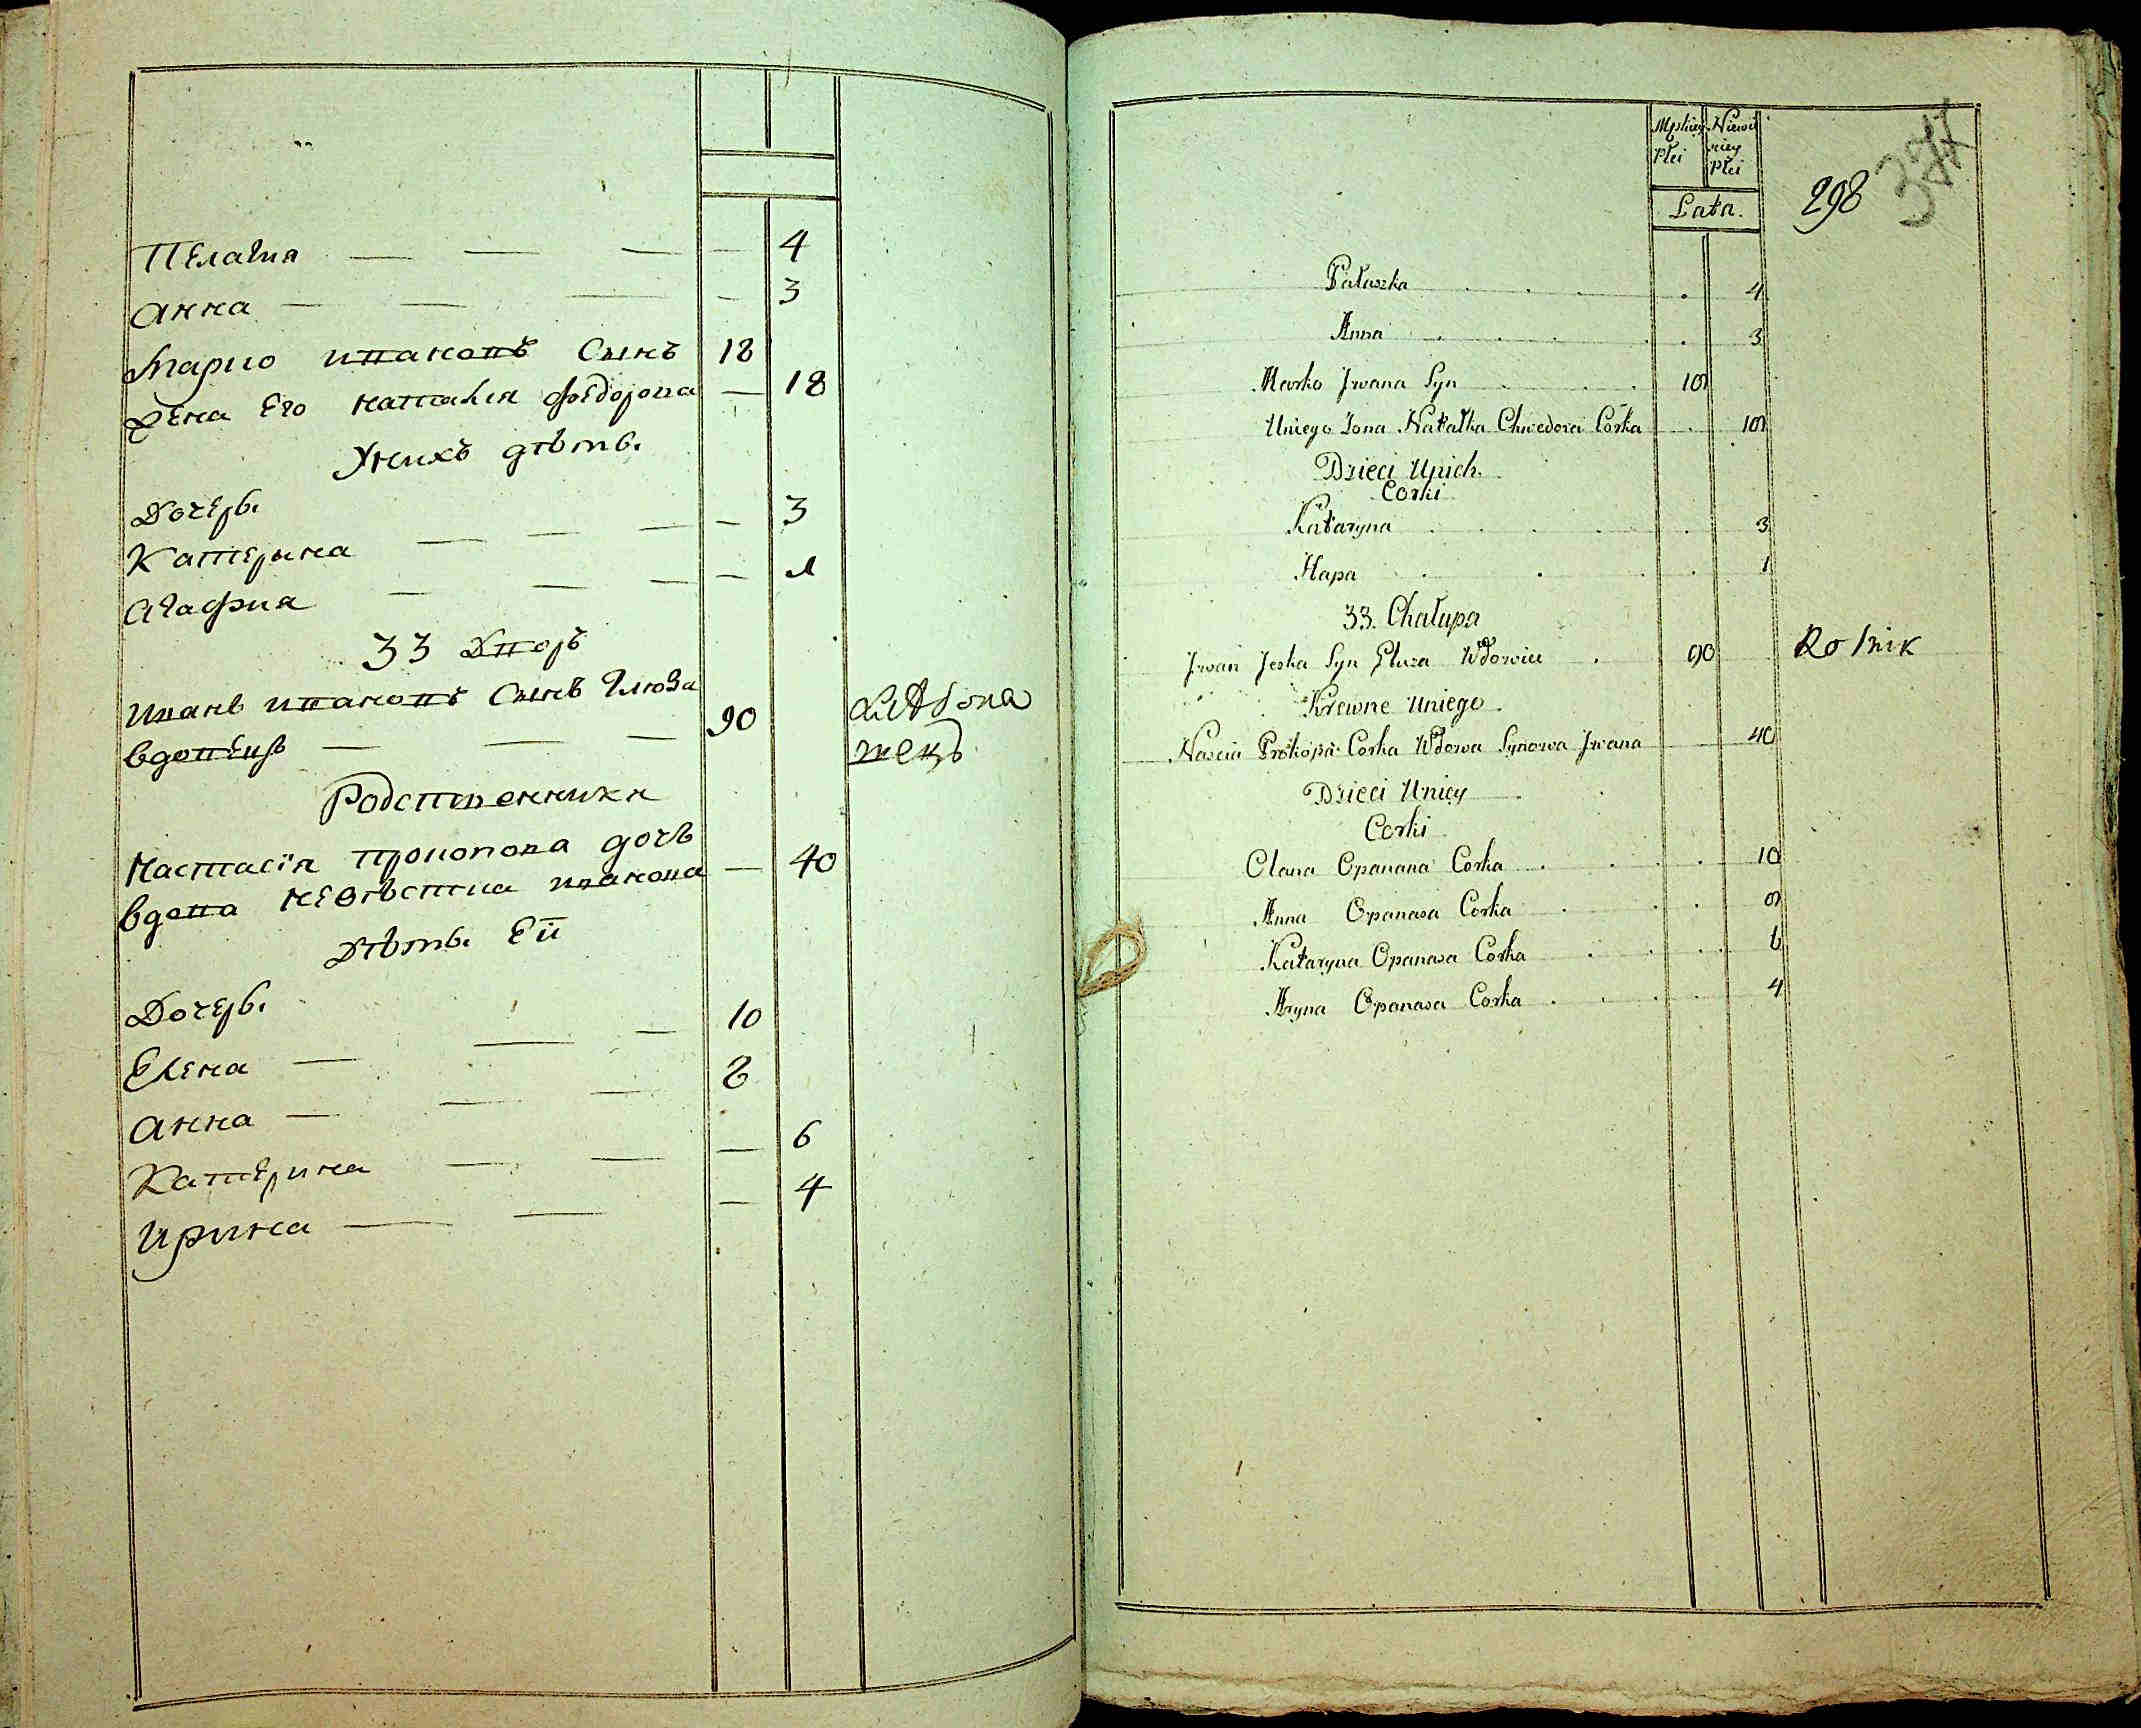 Пелагия — — — — 4
Анна — — — — 3
Марко Ивановъ Сынъ 18
Жена Его Наталия Федорова — 18
У нихъ дѣти.
Дочери.
Катерына — — — — 3
Агафия — — — — 1
33 Дворъ
Иванъ Ивановъ Сынъ Глюза
вдовецъ — — — 90 Хлѣбопа
шецъ
Родственники
Настасія Прокопова дочь
вдова невѣстка Иванова — 40
Дѣти Ей
Дочери.
Елена — — — 10
Анна — — — 8
Катерина — — — 6
Ирина — — — 4
Męskiey Płci
Niewieściey Płci
Lata.
298
Pałaszka . . . . 4
Anna . . . . 3
Marko Jwana Syn . . . 18
Uniego Żona Natalka Chwedora Córka . 18
Dzieci Unich.
Corki
Kataryna . . . . . 3
Hapa . . . . 1
33. Chałupa
Jwan Jeska Syn Gluza Wdowiec . 90 Rolnik
Krewne Uniego.
Nascia Prokopa Corka Wdowa Synowa Jwana 40
Dzieci Uniey
Corki
Olana Opanasa Corka . . . . 10
Anna Opanasa Corka . . . 8
Kataryna Opanasa Corka . . . . 6
Aryna Opanasa Corka . . . . 4